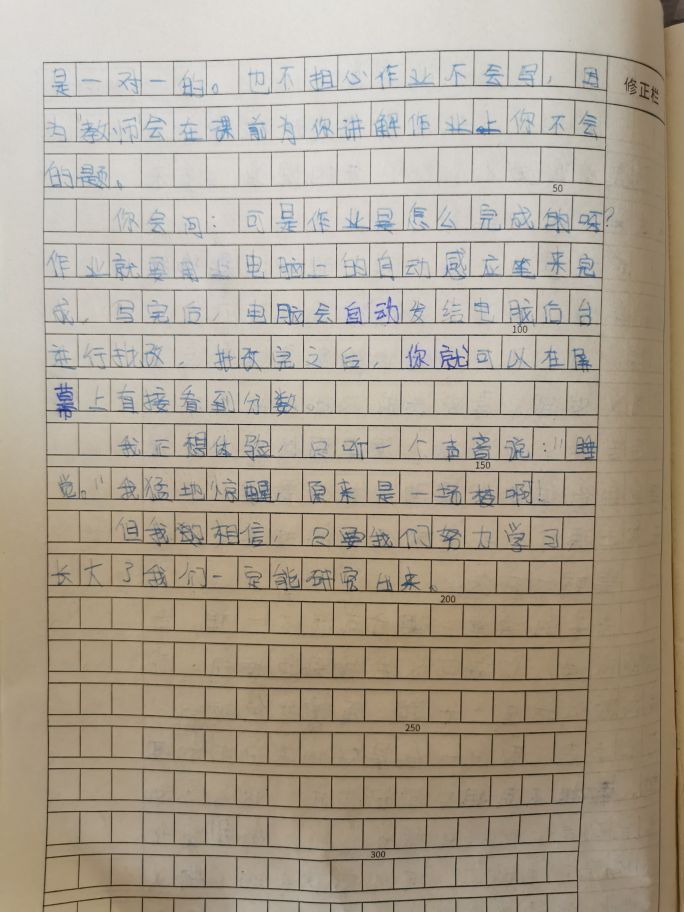 是一对一的。也不担心作业不会写，因
修正栏
为教师会在课前为你讲解作业上你不会
的题。
50
你会问：可是作业是怎么完成的呀？
作业就要用上电脑上的自动感应笔来完
成，写完后，电脑会自动发给电脑后台
100
进行批改，批改完之后，你就可以在屏
幕上直接看到分数。
我正想体验，只听一个声音说：“睡
150
觉。”我猛地惊醒，原来是一场梦啊！
但我相信，只要我们努力学习，
长大了我们一定能研究出来。
200
250
300